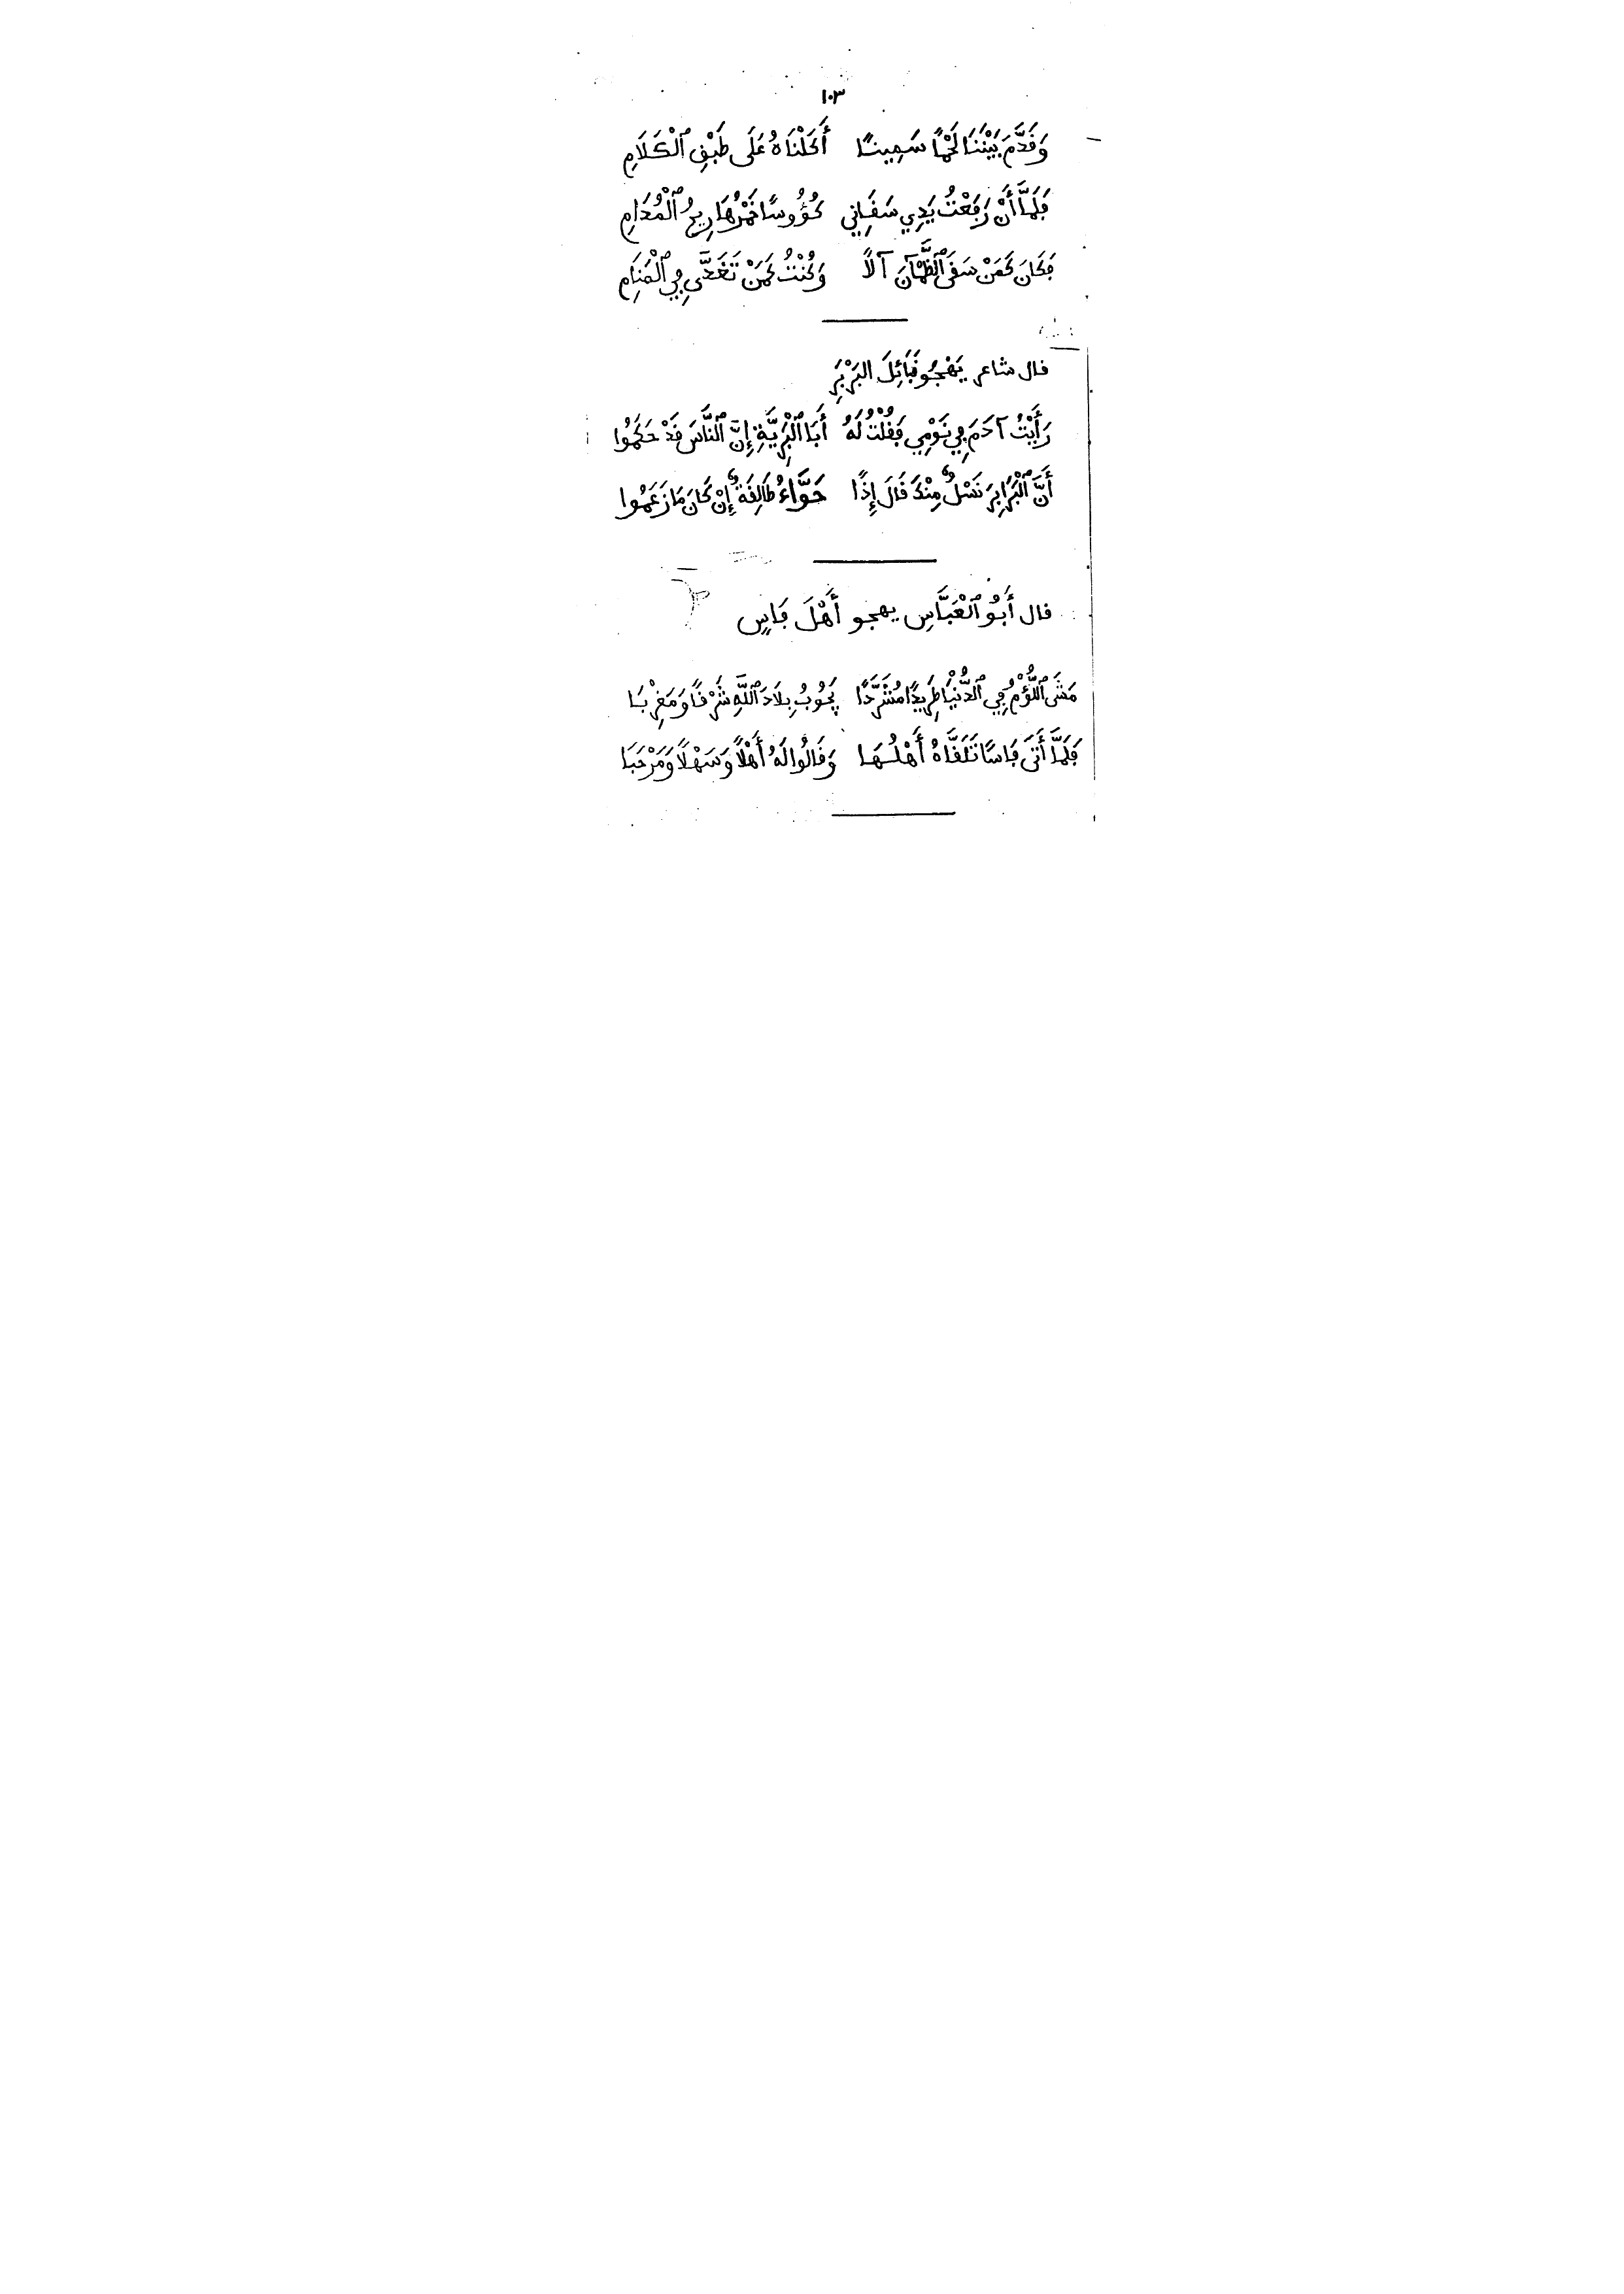 ١٠٣
وَقَدَّمَ بَيْنَنَا لَحْمًا سَمِينًا أَكَلْنَاهُ عَلَى طَبَقِ ٱلْكَلَامِ
فَلَمَّا أَنْ رَفَعْتُ يَدِي سَقَانِي كُؤُوسًا خَمْرُهَا رِيحُ ٱلْمُدَامِ
فَكَانَ كَمَنْ سَقَى ٱلظَّمْآنَ آلًا وَكُنْتُ كَمَنْ تَغَدَّى فِي ٱلْمَنَامِ
قال شاعر يَهْجُو قَبَائِلَ البَرْبَرِ
رَأَيْتُ آدَمَ فِي نَوْمِي فَقُلْتُ لَهُ أَبَا ٱلْبَرِيَّةِ إِنَّ ٱلنَّاسَ قَدْ حَكَمُوا
أَنَّ ٱلْبَرَابِرَ نَسْلٌ مِنْكَ قَالَ إِذًا حَوَّاءُ طَالِقَةٌ إِنْ كَانَ مَا زَعَمُوا
قال أَبُو ٱلْعَبَّاسِ يهجو أَهْلَ فَاسٍ
مَشَى ٱللُّؤْمُ فِي ٱلدُّنْيَا طَرِيدًا مُشَرَّدًا يَجُوبُ بِلَادَ ٱللَّهِ شَرْقًا وَمَغْرِبَا
فَلَمَّا أَتَى فَاسًا تَلَقَّاهُ أَهْلُهَا وَقَالُوا لَهُ أَهْلًا وَسَهْلًا وَمَرْحَبَا